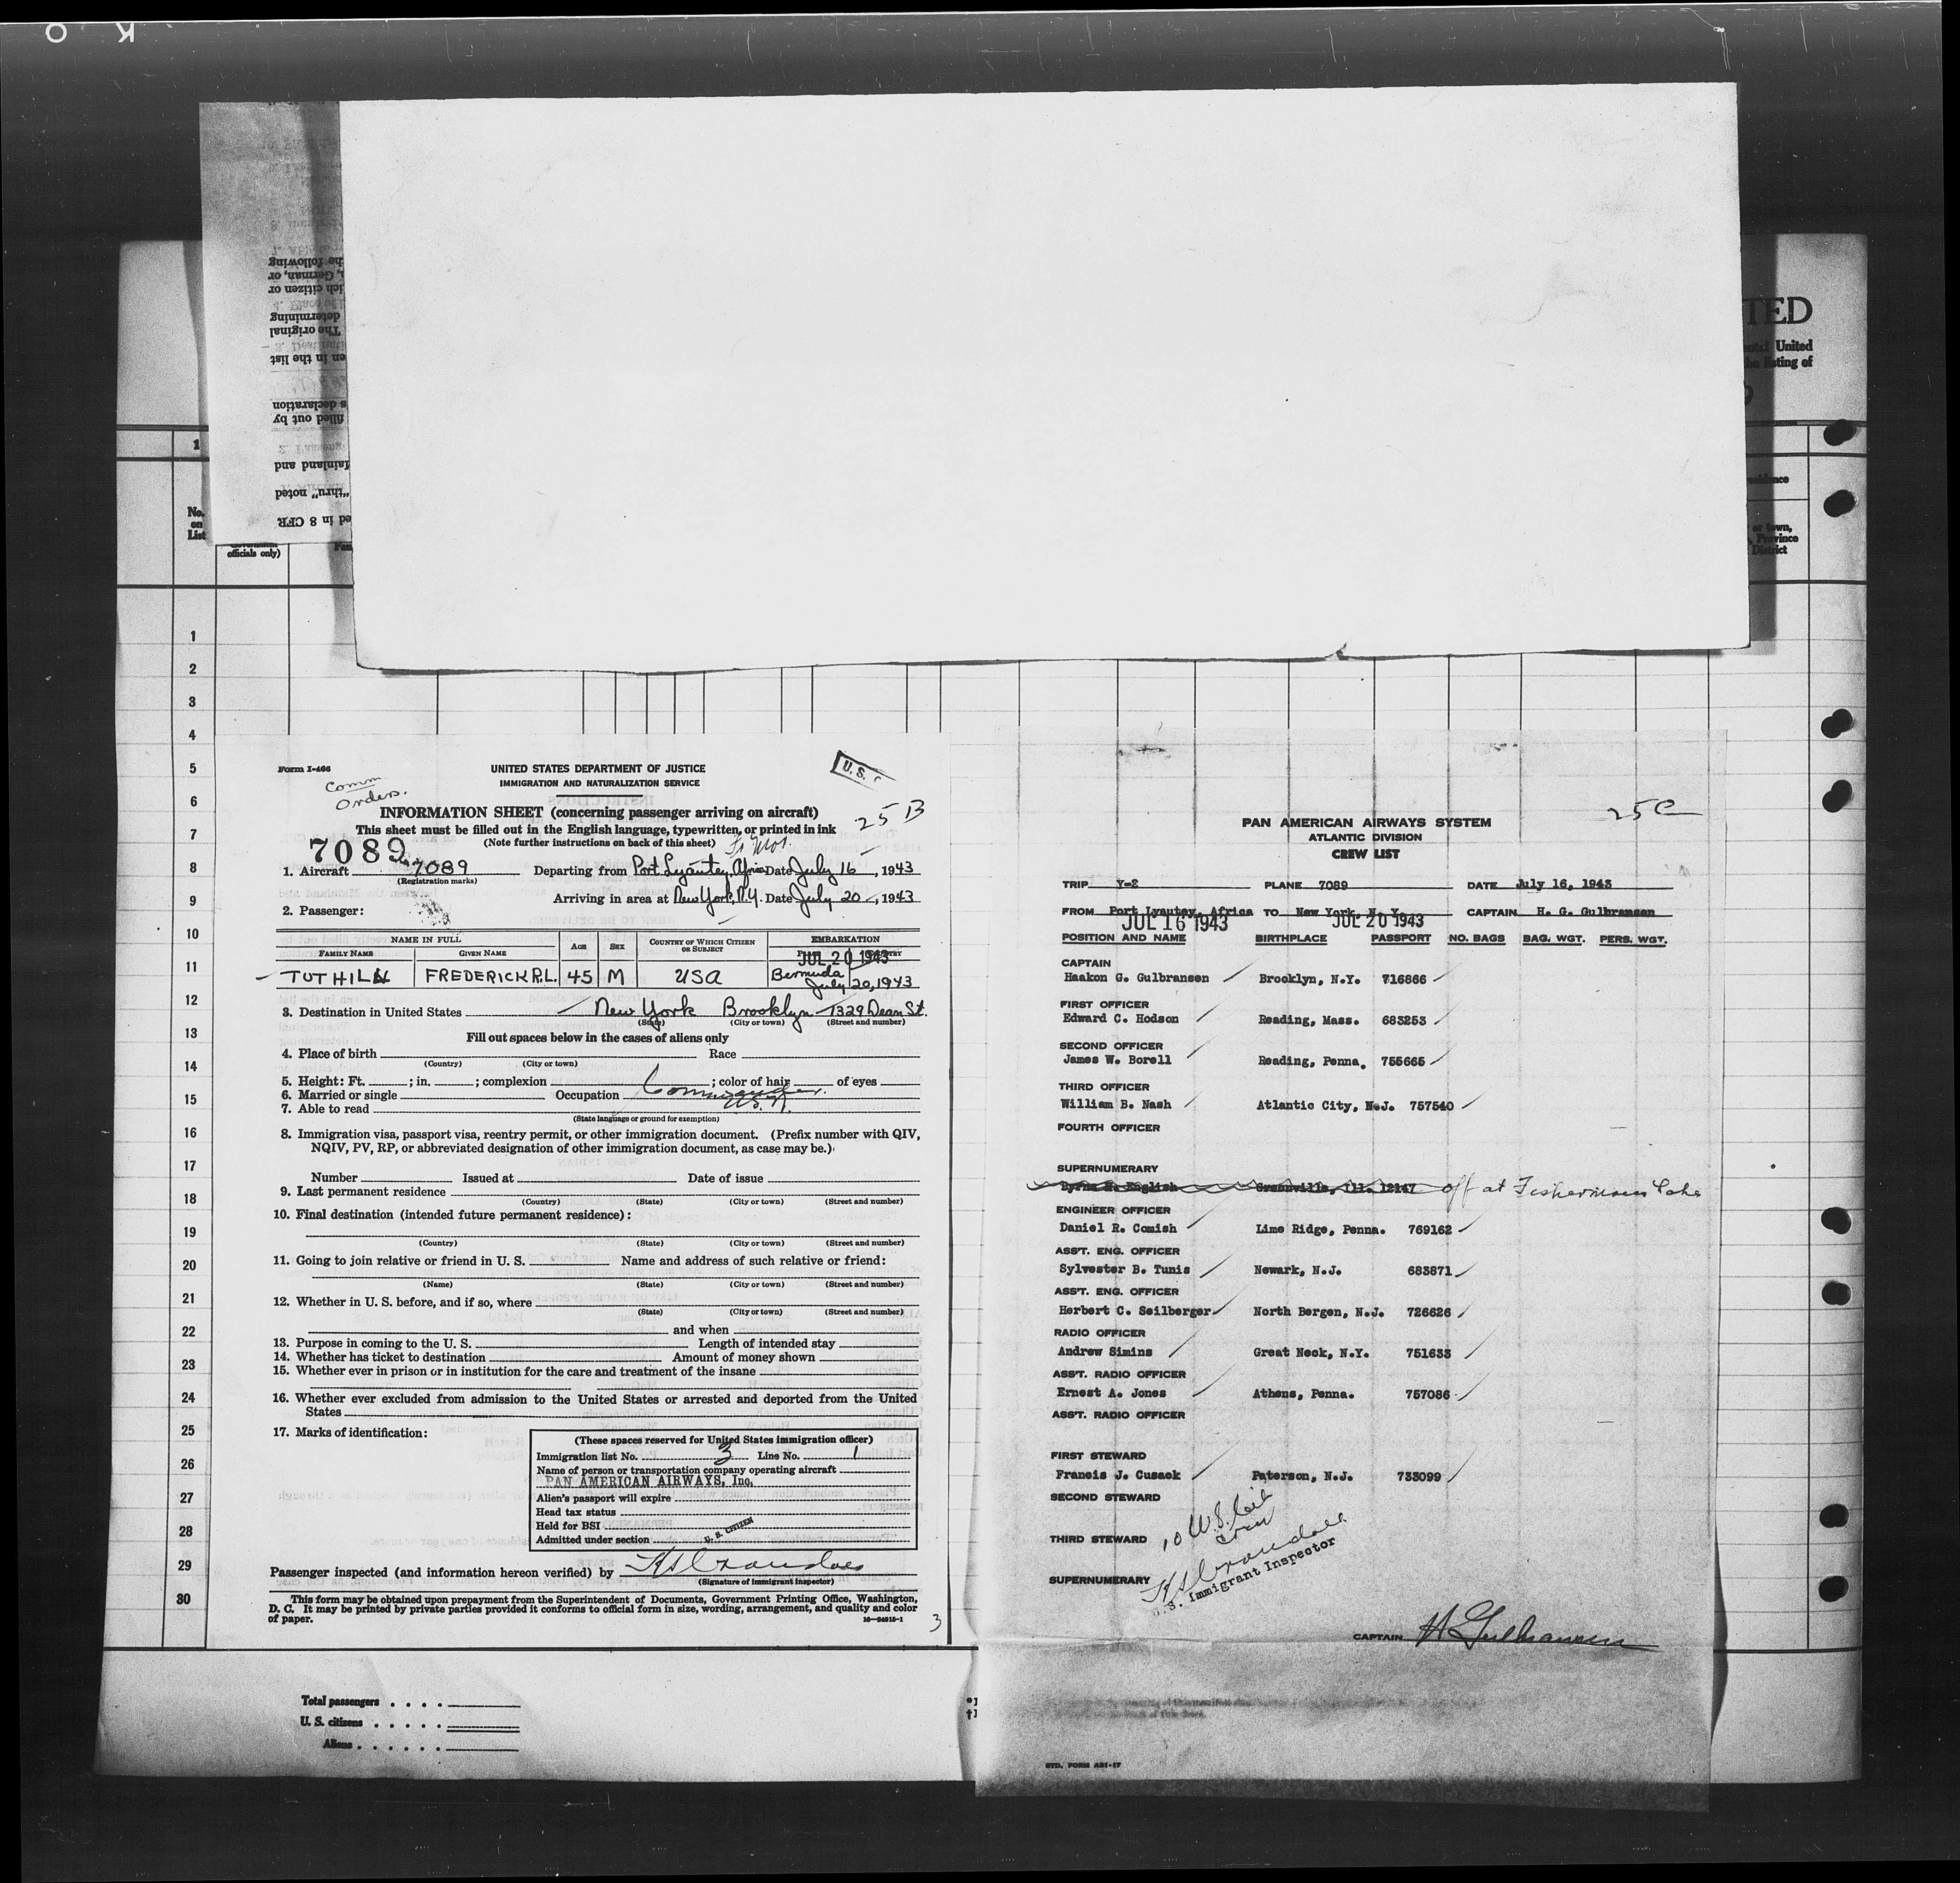 O K
TED
United
sting of
he following
, German, or
ich citizen or
determining
The original
en in the list
s declaration
filled out by
ainland and
"thru" noted
ed in 8 CFR
1
No.
on
List
officials only)
or town,
Province
District
1
2
3
4
5
6
7
8
9
10
11
12
13
14
15
16
17
18
19
20
21
22
23
24
25
26
27
28
29
30
Form I-466
Comm
Orders.
UNITED STATES DEPARTMENT OF JUSTICE
IMMIGRATION AND NATURALIZATION SERVICE
U.S.
25 B
INFORMATION SHEET (concerning passenger arriving on aircraft)
This sheet must be filled out in the English language, typewritten, or printed in ink
(Note further instructions on back of this sheet)
7089
1. Aircraft 7089 Departing from Port Lyautey, Africa Date July 16, 1943
(Registration marks)
Arriving in area at New York, N.Y. Date July 20, 1943
2. Passenger:
NAME IN FULL AGE SEX COUNTRY OF WHICH CITIZEN OR SUBJECT EMBARKATION
FAMILY NAME GIVEN NAME
JUL 20 1943
TUTHILL FREDERICK R.L. 45 M USA Bermuda
July 20, 1943
3. Destination in United States New York Brooklyn 1329 Dean St.
(State) (City or town) (Street and number)
Fill out spaces below in the cases of aliens only
4. Place of birth Race
(Country) (City or town)
5. Height: Ft. ; in. ; complexion ; color of hair of eyes
6. Married or single Occupation Commander
U.S.N.
7. Able to read
(State language or ground for exemption)
8. Immigration visa, passport visa, reentry permit, or other immigration document. (Prefix number with QIV,
NQIV, PV, RP, or abbreviated designation of other immigration document, as case may be.)
Number Issued at Date of issue
9. Last permanent residence
(Country) (State) (City or town) (Street and number)
10. Final destination (intended future permanent residence):
(Country) (State) (City or town) (Street and number)
11. Going to join relative or friend in U. S. Name and address of such relative or friend:
(Name) (State) (City or town) (Street and number)
12. Whether in U. S. before, and if so, where
(State) (City or town) (Street and number)
and when
13. Purpose in coming to the U. S. Length of intended stay
14. Whether has ticket to destination Amount of money shown
15. Whether ever in prison or in institution for the care and treatment of the insane
16. Whether ever excluded from admission to the United States or arrested and deported from the United
States
17. Marks of identification:
(These spaces reserved for United States immigration officer)
Immigration list No. 3 Line No. 1
Name of person or transportation company operating aircraft
PAN AMERICAN AIRWAYS, Inc.
Alien's passport will expire
Head tax status
Held for BSI
Admitted under section U. S. CITIZEN
Passenger inspected (and information hereon verified) by
(Signature of immigrant inspector)
This form may be obtained upon prepayment from the Superintendent of Documents, Government Printing Office, Washington,
D. C. It may be printed by private parties provided it conforms to official form in size, wording, arrangement, and quality and color
of paper.
3
Total passengers
U. S. citizens
Aliens
25C
PAN AMERICAN AIRWAYS SYSTEM
ATLANTIC DIVISION
CREW LIST
TRIP Y-2 PLANE 7089 DATE July 16, 1943
FROM Port Lyautey, Africa TO New York, N.Y. CAPTAIN H. G. Gulbransen
JUL 16 1943 JUL 20 1943
POSITION AND NAME BIRTHPLACE PASSPORT NO. BAGS BAG. WGT. PERS. WGT.
CAPTAIN
Haakon G. Gulbransen Brooklyn, N.Y. 716866
FIRST OFFICER
Edward C. Hodson Reading, Mass. 683253
SECOND OFFICER
James W. Borell Reading, Penna. 755665
THIRD OFFICER
William B. Nash Atlantic City, N.J. 757540
FOURTH OFFICER
SUPERNUMERARY
English Greenville, Ill. 12147 off at Fishermans Lake
ENGINEER OFFICER
Daniel R. Comish Lime Ridge, Penna. 769162
ASS'T. ENG. OFFICER
Sylvester B. Tunis Newark, N.J. 683871
ASS'T. ENG. OFFICER
Herbert C. Seilberger North Bergen, N.J. 726626
RADIO OFFICER
Andrew Simins Great Neck, N.Y. 751633
ASS'T. RADIO OFFICER
Ernest A. Jones Athens, Penna. 757086
ASS'T. RADIO OFFICER
FIRST STEWARD
Francis J. Cusack Paterson, N.J. 733099
SECOND STEWARD
THIRD STEWARD 10 U.S. Cit
crew
SUPERNUMERARY
U.S. Immigrant Inspector
CAPTAIN H Gulbransen
STD. FORM AD1-17